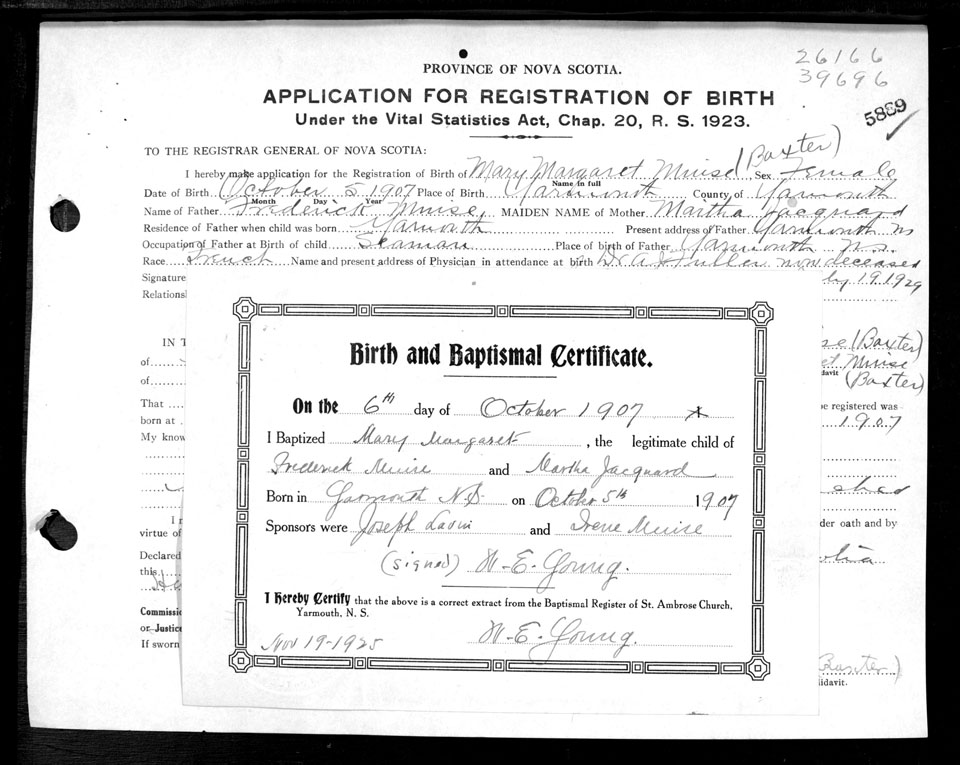 26166
39696
5889
PROVINCE OF NOVA SCOTIA.
APPLICATION FOR REGISTRATION OF BIRTH
Under the Vital Statistics Act, Chap. 20, R. S. 1923.
TO THE REGISTRAR GENERAL OF NOVA SCOTIA:
I hereby make application for the Registration of Birth of Mary Margaret Muise (Baxter) Sex Female
Name in full
Date of Birth October 5 1907 Place of Birth Yarmouth County of Yarmouth
Month Day Year
Name of Father Frederick Muise MAIDEN NAME of Mother Martha Jacquard
Residence of Father when child was born Yarmouth Present address of Father Yarmouth NS
Occupation of Father at Birth of child Seaman Place of birth of Father Yarmouth N.S.
Race French Name and present address of Physician in attendance at birth Dr. A. Fuller now deceased
Signature 19 1929
Relations
IN T se (Baxter)
of et Muise
davit
of (Baxter)
That be registered was
born at 1907
My know
shed
I
virtue of der oath and by
Declared otia
this
Commiss
or Justice
If sworn (Baxter)
idavit.
Birth and Baptismal Certificate.
On the 6th day of October 1907
I Baptized Mary Margaret, the legitimate child of
Frederick Muise and Martha Jacquard
Born in Yarmouth N.S. on October 5th 1907
Sponsors were Joseph and Irene Muise
(signed) W. E. Young.
I Hereby Certify that the above is a correct extract from the Baptismal Register of St. Ambrose Church,
Yarmouth, N. S.
Nov 19-1925 W. E. Young.